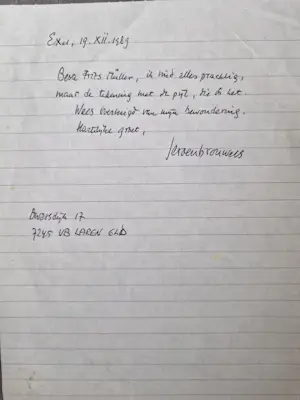 Exel, 19.XII.1989
Beste Frits Müller, ik vind alles prachtig,
maar de tekening met de pijl, die is het.
Wees overtuigd van mijn bewondering.
Hartelijke groet,
Jeroen Brouwers
17
7245 VB LAREN Gld